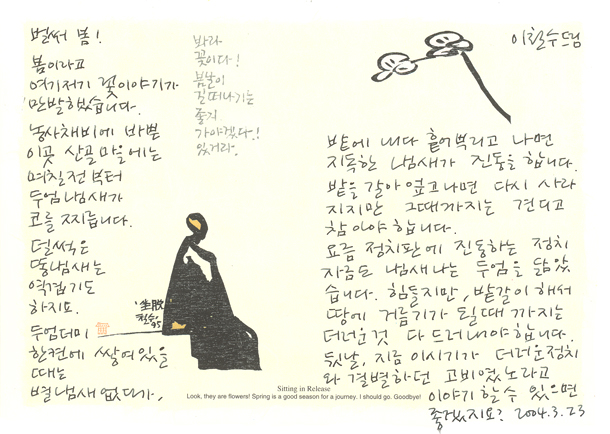 벌써 봄!
봄이라고
여기저기 꽃이야기가
만발했습니다.
농사채비에 바쁜
이곳 산골마을에는
며칠전부터
두엄냄새가
코를 찌릅니다.
덜썩은
똥냄새는
역겹기도
하지요.
두엄더미
한켠에 쌓여있을
때는
별냄새 없다가,
봐라
꽃이다!
봄날이
길떠나기는
좋지
가야겠다!
있거라.
坐脫
철수
95
Sitting in Release
Look, they are flowers! Spring is a good season for a journey. I should go. Goodbye!
이철수드림
밭에 내다 흩어뿌리고 나면
지독한 냄새가 진동을 합니다.
밭을 갈아 엎고나면 다시 사라
지지만 그때까지는 견디고
참아야 합니다.
요즘 정치판에 진동하는 정치
자금도 냄새나는 두엄을 닮았
습니다. 힘들지만, 밭갈이 해서
땅에 거름기가 될때 까지는
더러운것 다 드러내야합니다.
뒷날, 지금 이시기가 더러운정치
와 결별하던 고비였노라고
이야기 할 수 있으면
좋겠지요? 2004.3.23